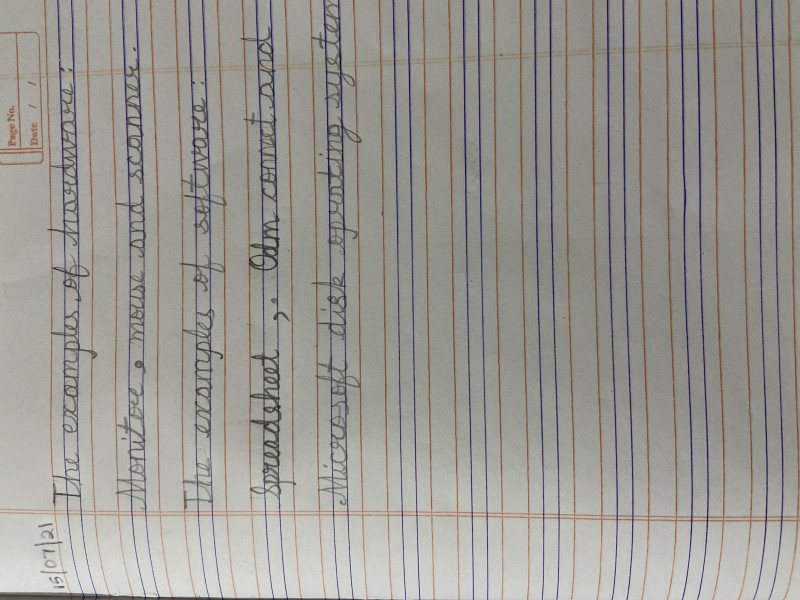 Page No.
Date / /
15/07/21
The examples of hardware:
Monitore, mouse and scanner.
The examples of software:
Spreadsheet ,. Odm comet and
Microsoft disk oprnting system